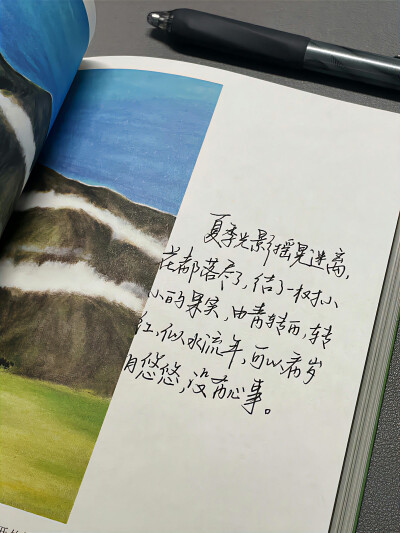 夏季光影摇晃迷离，
花都落尽了，结了一树小
小的果实，由青转而，转
红，似水流年，可以有岁
月悠悠，没有心事。